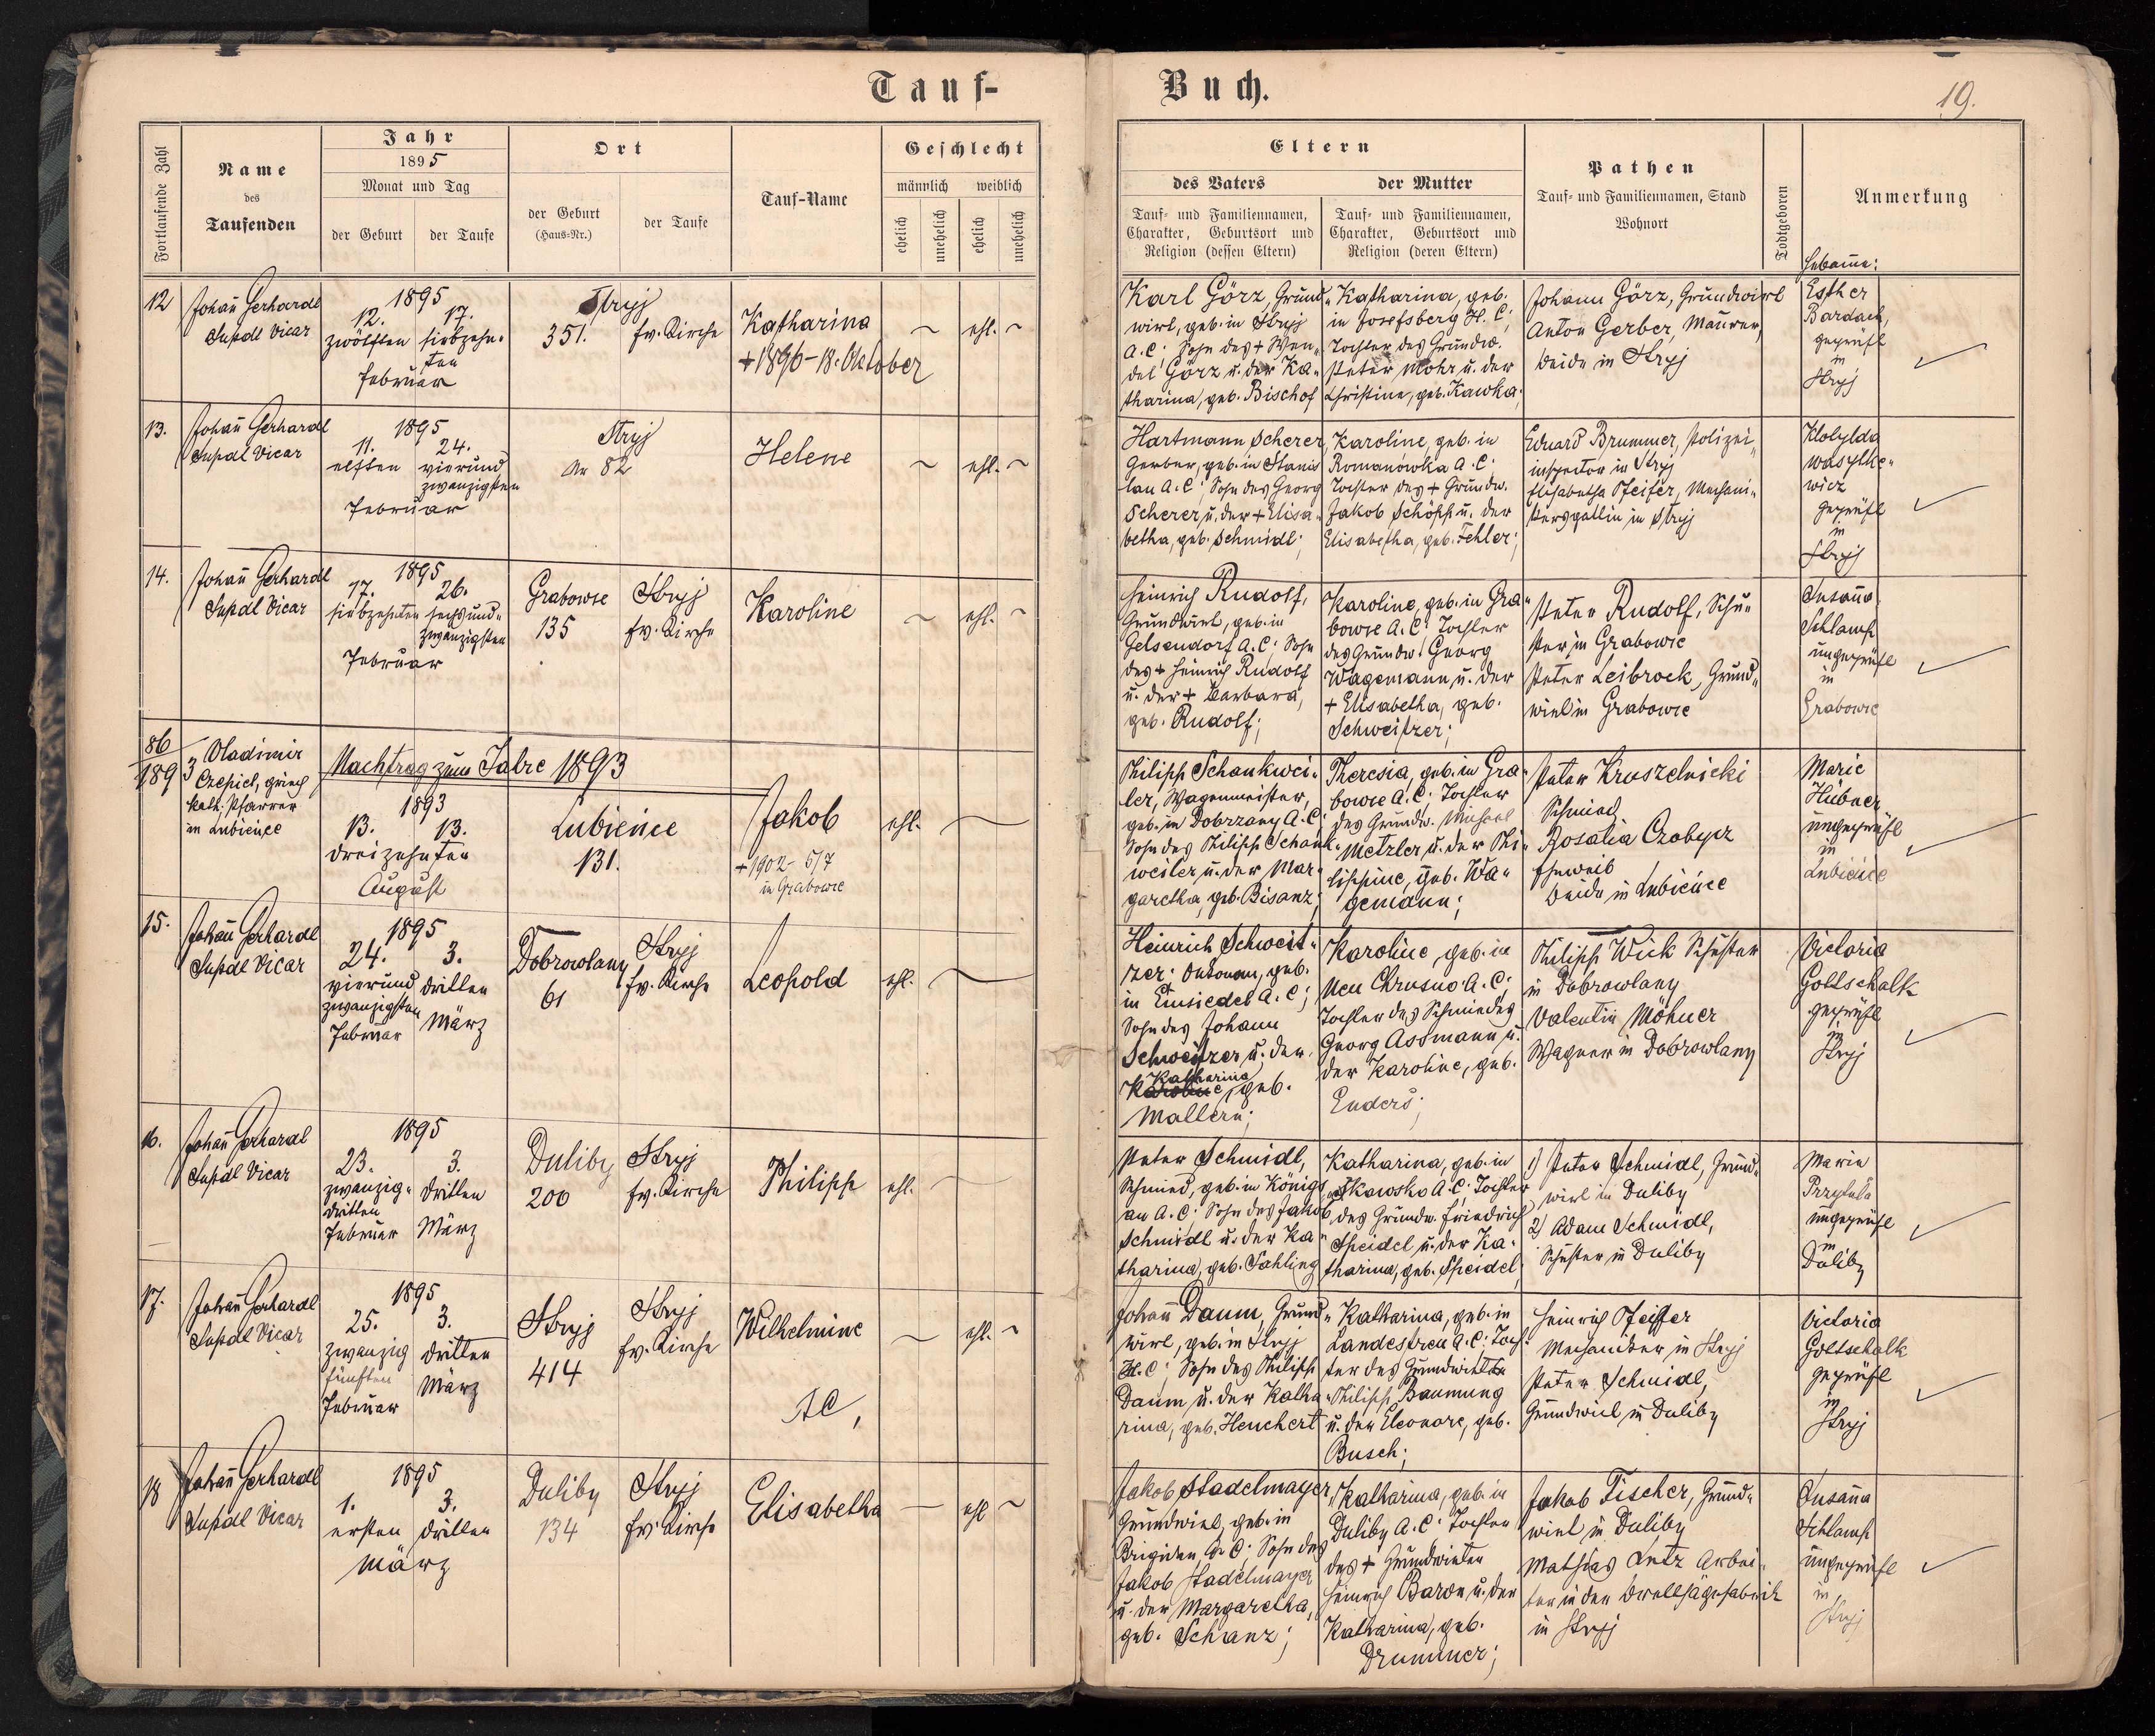 Tauf-
Buch.
19.
Fortlaufende Zahl
Name
des
Taufenden
Jahr
1895
Monat und Tag
der Geburt
der Taufe
Ort
der Geburt
(Haus-Nr.)
der Taufe
Tauf-Name
Geschlecht
männlich
weiblich
ehelich
unehelich
ehelich
unehelich
Eltern
des Vaters
Tauf- und Familiennamen,
Charakter, Geburtsort und
Religion (dessen Eltern)
der Mutter
Tauf- und Familiennamen,
Charakter, Geburtsort und
Religion (deren Eltern)
Pathen
Tauf- und Familiennamen, Stand
Wohnort
Todtgeboren
Anmerkung
Hebame:
12
Johañ Gerhardt
Supdl Vicar
1895
12. 17.
zwölften siebzehn-
ten
Februar
Stryj
351. ev. Kirche
Katharina
+ 1896-18. Oktober
ehl.
Karl Görz, Grund-
wirt, geb. in Stryj
A.C. Sohn des + Wen-
del Görz u. der Ka-
tharina, geb. Bischof
Katharina, geb.
in Josefsberg H. C.;
Tochter des Grundw.
Peter Mohr u. der
Christine, geb. Kawka;
Johann Görz, Grundwirt
Anton Gerber, Maurer,
beide in Stryj
Esther
Bardach,
geprüft
in
Stryj
13.
Johañ Gerhardt
Supdl Vicar
1895
11. 24.
elften vierund
zwanzigsten
Februar
Stryj
Nr 82
Helene
ehl.
Hartmann Scherer,
Gerber, geb. in Stanis
lau A.C; Sohn des Georg
Scherer u. der + Elisa-
betha, geb. Schmidt;
Karoline, geb. in
Romanówka A.C.
Tochter des + Grundw.
Jakob Schöpp u. der
Elisabetha, geb. Fehler;
Eduard Brummer, Polizei-
inspector in Stryj
Elisabetha Pfeifer, Mechani-
kersgattin in Stryj
Klotylda
Wasylke-
wicz
geprüft
in
Stryj
14.
Johañ Gerhardt
Supdl Vicar
1895
17. 26.
siebzehnten sechsund-
zwanzigsten
Februar
Grabowce
135
Stryj
ev. Kirche
Karoline
ehl.
Heinrich Rudolf,
Grundwirt, geb. in
Gelsendorf A.C; Sohn
des + Heinrich Rudolf
u. der + Barbara,
geb. Rudolf;
Karoline, geb. in Gra-
bowce A.C; Tochter
des Grundw. Georg
Wagemann u. der
+ Elisabetha, geb.
Schweitzer;
Peter Rudolf, Schu-
ster in Grabowce
Peter Leibrock, Grund-
wirt in Grabowce
Susaña
Schlamp
ungeprüft
in
Grabowce
86
1893
Vladimir
Czepiel, griech
kath. Pfarrer
in Lubieńce
Nachtrag zum Jahre 1893
1893
13. 13.
dreizehnten
August
Lubience
131.
Jakob
+ 1902- 5/7
in Grabowce
ehl.
Philipp Schankwei-
ler, Wagenmeister,
geb. in Dobrzany A.C;
Sohn des Philipp Schank-
weiler u. der Mar-
garetha, geb. Bisanz;
Theresia, geb. in Gra-
bowce A.C; Tochter
des Grundw. Michael
Metzler u. der Phi-
lippine, geb. Wa-
gemann;
Peter Kruszelnicki
Schmied
Rosalia Czobyrz
Eheweib
beide in Lubieńce
Marie
Hübner
ungeprüft
in
Lubieńce
15.
Johañ Gerhardt
Supdl Vicar
1895
24. 3.
vierund dritten
zwanzigsten
Februar März
Dobrowlany
61
Stryj
ev. Kirche
Leopold
ehl.
Heinrich Schweit-
zer, Oekonom, geb.
in Einsiedel A.C;
Sohn des Johann
Schweitzer u. der
Katharina
Karoline, geb.
Mallern;
Karoline, geb. in
Neu Chrusno A.C.
Tochter des Schmiedes
Georg Assmann u.
der Karoline, geb.
Enders;
Philipp Wick Schuster
in Dobrowlany
Valentin Möhner
Wagner in Dobrowlany
Victoria
Gottschalk
geprüft
in
Stryj
16.
Johañ Gerhardt
Supdl Vicar
1895
23. 3.
zwanzig- dritten
dritten
Februar März
Duliby
200
Stryj
ev. Kirche
Philipp
ehl.
Peter Schmidt,
Schmied, geb. in Königs
au A.C; Sohn des Jakob
Schmidt u. der Ka-
tharina, geb. Sahling
Katharina, geb. in
A.C; Tochter
des Grundw. Friedrich
Speidel u. der Ka-
tharina, geb. Speidel;
1) Peter Schmidt, Grund-
wirt in Duliby
2) Adam Schmidt,
Schuster in Duliby
Maria
Przytuła
ungeprüft
in
Duliby
17.
Johañ Gerhardt
Supdl Vicar
1895
25. 3.
zwanzig dritten
fünften März
Februar
Stryj
414
Stryj
ev. Kirche
Wilhelmine
AC,
ehl.
Johañ Daum, Grund-
wirt, geb. in Stryj
H.C; Sohn des Philipp
Daum u. der Katha-
rina, geb. Heuchert
Katharina, geb. in
Landestreu A.C; Toch-
ter des Grundwirten
Philipp Baumung
u. der Eleonore, geb.
Busch;
Heinrich Pfeiffer
Mechaniker in Stryj
Peter Schmidt,
Grundwirt in Duliby
Victoria
Gottschalk
geprüft
in
Stryj
18
Johañ Gerhardt
Supdl Vicar
1895
1. 3.
ersten dritten
März
Duliby
134
Stryj
ev. Kirche
Elisabetha
ehl
Jakob Stadelmayer,
Grundwirt, geb. in
Brigidau, A.C; Sohn des
Jakob Stadelmayer
u. der Margaretha,
geb. Schanz;
Katharina, geb. in
Duliby A.C; Tochter
des + Grundwirten
Heinrich Baron u. der
Katharina, geb.
Drummer;
Jakob Fischer, Grund-
wirt in Duliby
Mathias Lutz Arbei-
ter in der
in Stryj
Susaña
Schlamp
ungeprüft
in
Stryj